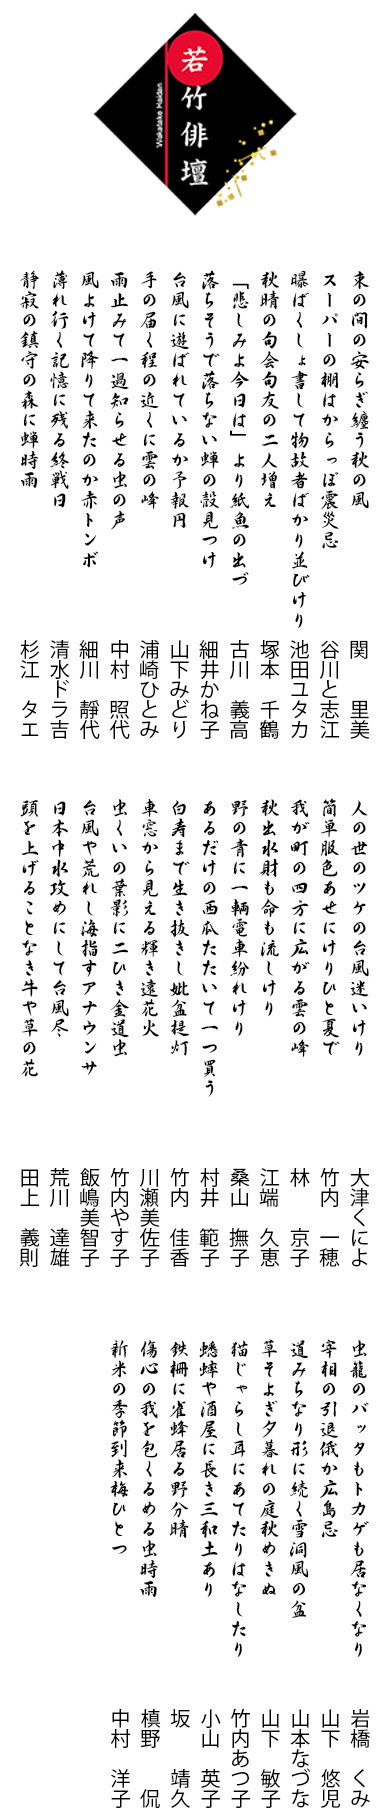 若竹俳壇
Wakatake Haidan
束の間の安らぎ纏う秋の風 関 里美
スーパーの棚はからっぽ震災忌 谷川と志江
曝ばくしょ書して物故者ばかり並びけり 池田ユタカ
秋晴の句会句友の二人増え 塚本 千鶴
「悲しみよ今日は」より紙魚の出づ 古川 義高
落ちそうで落ちない蝉の殻見つけ 細井かね子
台風に遊ばれているか予報円 山下みどり
手の届く程の近くに雲の峰 浦崎ひとみ
雨止みて一過知らせる虫の声 中村 照代
風よけて降りて来たのか赤トンボ 細川 靜代
薄れ行く記憶に残る終戦日 清水ドラ吉
静寂の鎮守の森に蝉時雨 杉江 タエ
人の世のツケの台風迷いけり 大津くによ
簡単服色あせにけりひと夏で 竹内 一穂
我が町の四方に広がる雲の峰 林 京子
秋出水財も命も流しけり 江端 久恵
野の青に一輌電車紛れけり 桑山 撫子
あるだけの西瓜たたいて一つ買う 村井 範子
白寿まで生き抜きし妣盆提灯 竹内 佳香
車窓から見える輝き遠花火 川瀬美佐子
虫くいの葉影に二ひき金道虫 竹内やす子
台風や荒れし海指すアナウンサ 飯嶋美智子
日本中水攻めにして台風尽 荒川 達雄
頭を上げることなき牛や草の花 田上 義則
虫籠のバッタもトカゲも居なくなり 岩橋 くみ
宰相の引退俄か広島忌 山下 悠児
道みちなり形に続く雪洞風の盆 山本なづな
草そよぎ夕暮れの庭秋めきぬ 山下 敏子
猫じゃらし耳にあてたりはなしたり 竹内あつ子
蟋蟀や酒屋に長き三和土あり 小山 英子
鉄柵に雀蜂居る野分晴 坂 靖久
傷心の我を包くるめる虫時雨 槙野 侃
新米の季節到来梅ひとつ 中村 洋子